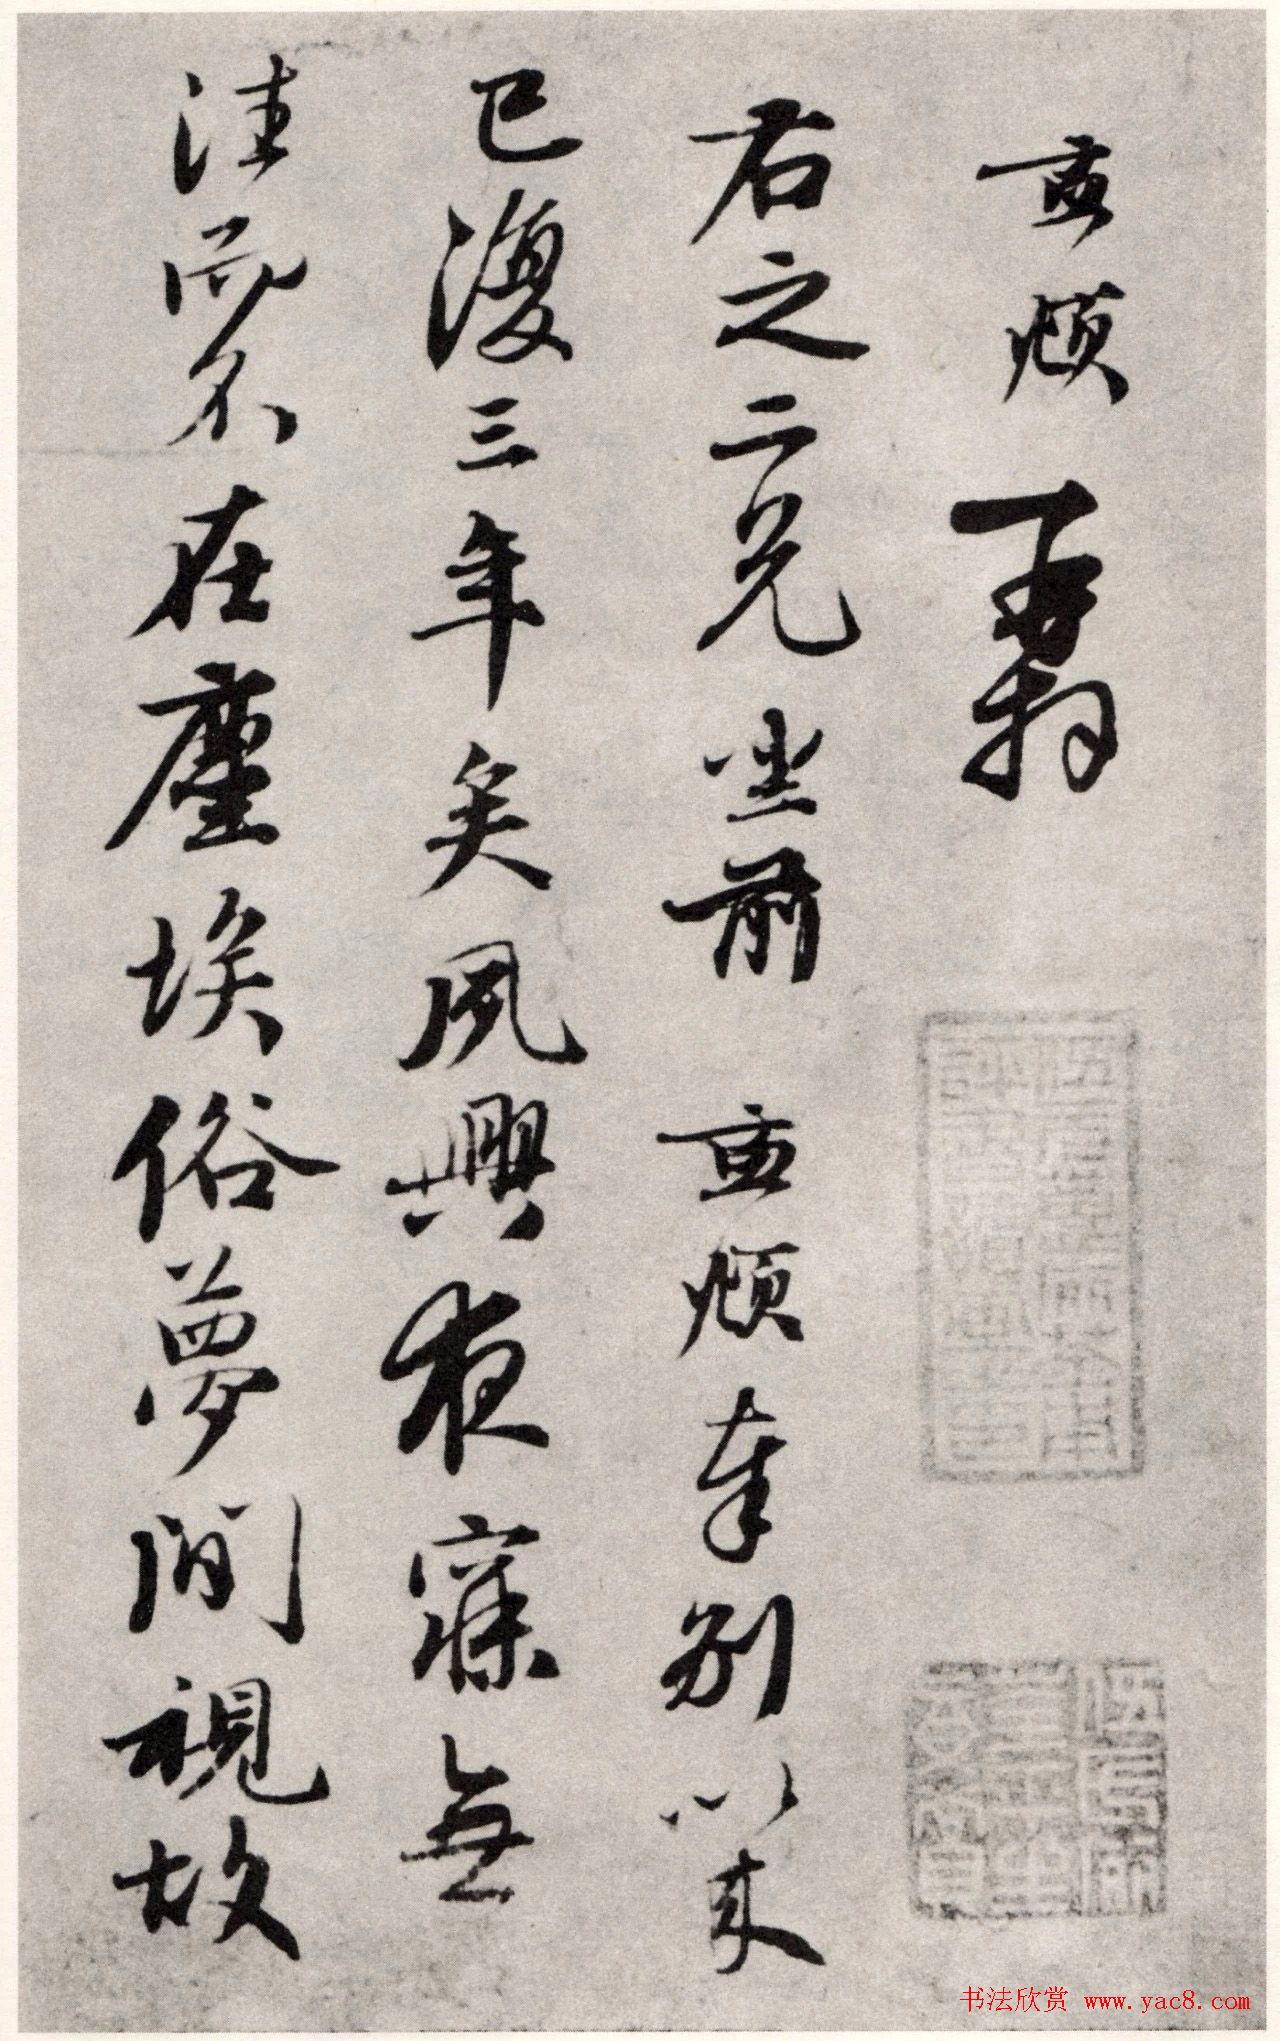 孟頫再拜
右之二兄坐前 孟頫奉别以来
已復三年矣夙興夜寐無
往而不在塵埃俗夢間視故
书法欣赏 www.yac8.com